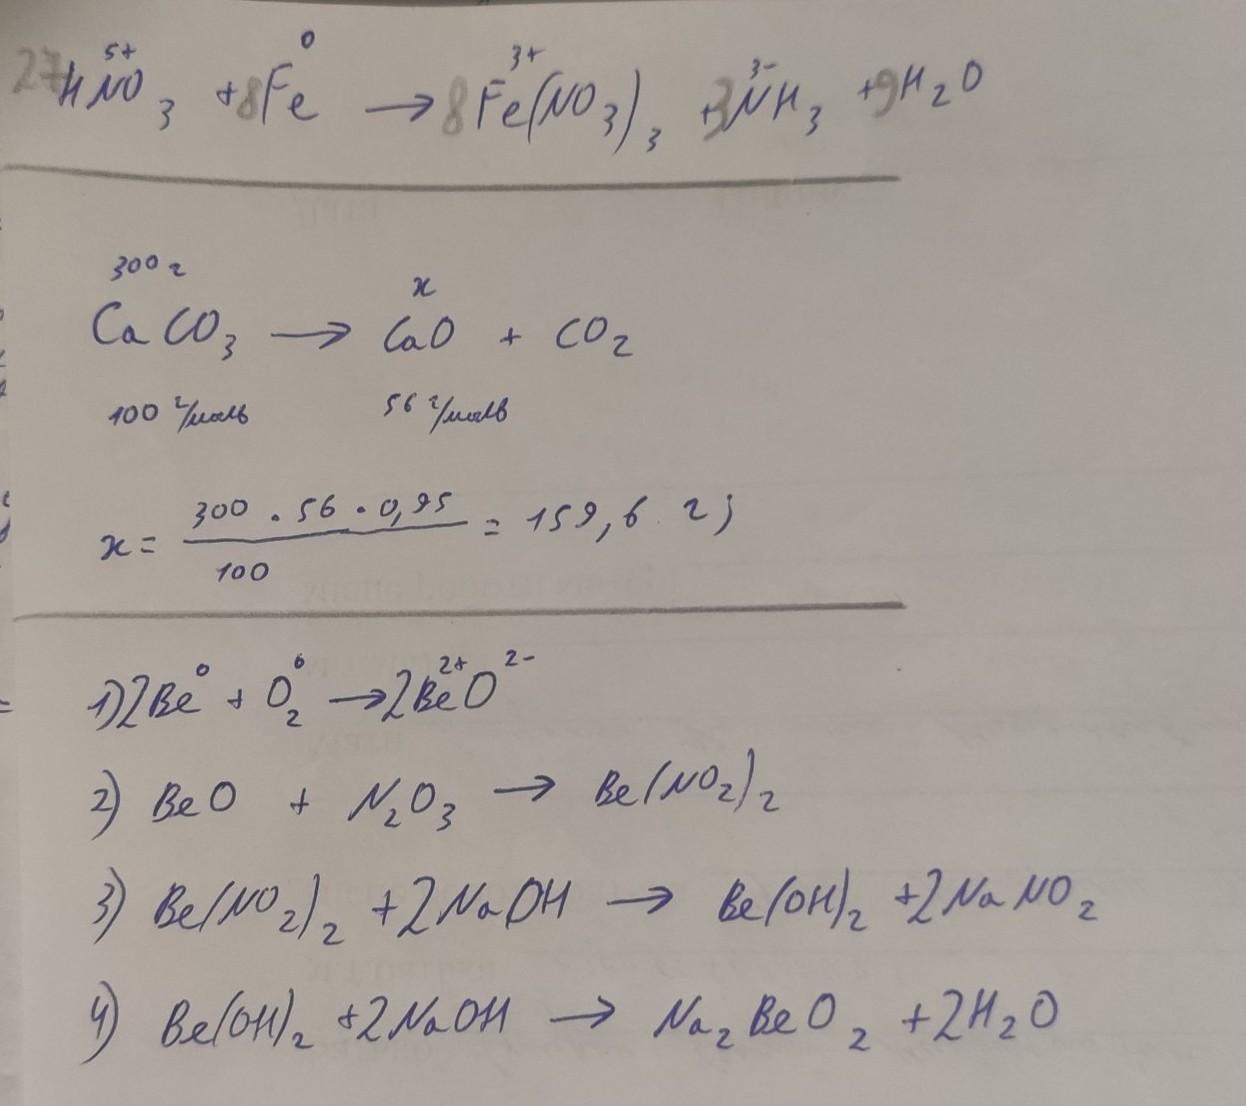 5+ 0 3+ 3-
27HNO₃ + 8Fe → 8Fe(NO₃)₃ + 3NH₃ + 9H₂O
300 г x
CaCO₃ → CaO + CO₂
100 г/моль 56 г/моль
x = (300 · 56 · 0,95)/100 = 159,6 г;
1) 2Be⁰ + O₂⁰ → 2Be²⁺O²⁻
2) BeO + N₂O₃ → Be(NO₂)₂
3) Be(NO₂)₂ + 2NaOH → Be(OH)₂ + 2NaNO₂
4) Be(OH)₂ + 2NaOH → Na₂BeO₂ + 2H₂O